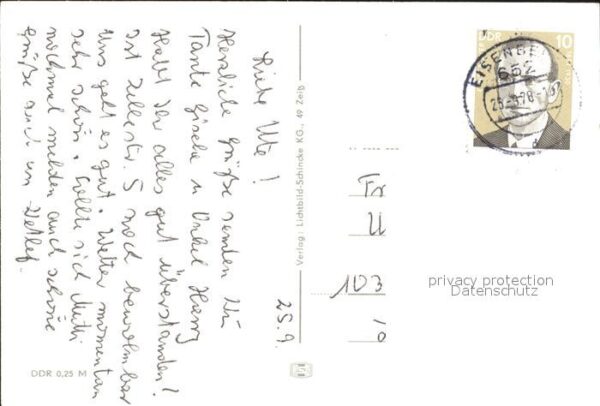 Liebe Ute!
Herzliche Grüße senden Dir
Tante Gisela u Onkel Harry
Habt Ihr alles gut überstanden!
Ist Zellestr. 5 noch bewohnbar
Uns geht es gut. Wetter momentan
sehr schön. sollte sich Mutti
nochmal melden auch schöne
Grüße auch von Detlef.
25.9.
DDR 0,25 M
Verlag: Lichtbild-Schincke KG., 49 Zeitz
DDR
10
EISENBE
652
Fr
U
103
privacy protection
Datenschutz